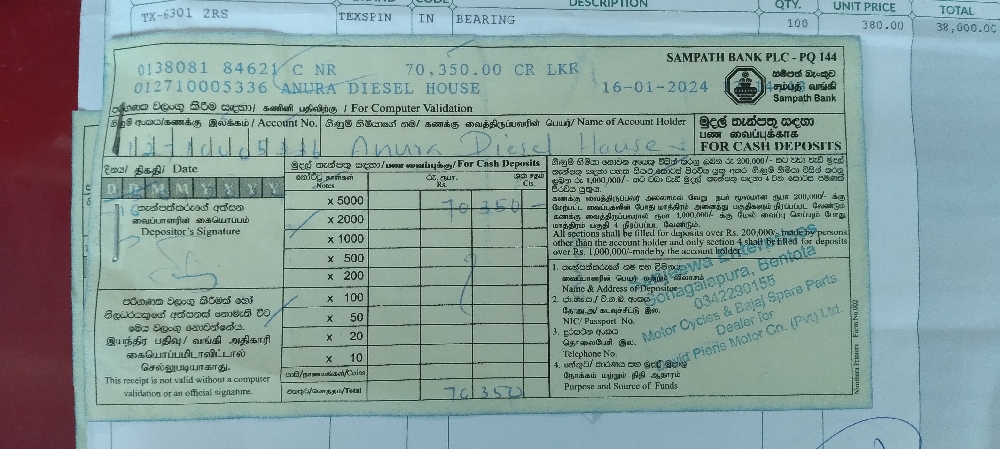 DESCRIPTION
QTY.
UNIT PRICE
TOTAL
TX-6301 2RS TEXSPIN IN BEARING 100 380.00 38,000.00
SAMPATH BANK PLC - PQ 144
0138081 84621 C NR 70,350.00 CR LKR
012710005336 ANURA DIESEL HOUSE 16-01-2024
සම්පත් බැංකුව
சம்பத் வங்கி
Sampath Bank
පරිගණක වලංගු කිරීම සඳහා / கணினி பதிவிற்கு / For Computer Validation
ගිණුම් අංකය/கணக்கு இலக்கம் / Account No.
ගිණුම් හිමියාගේ නම/ கணக்கு வைத்திருப்பவரின் பெயர்/ Name of Account Holder
Anura Diesel House
මුදල් තැන්පතු සඳහා
பண வைப்புக்காக
FOR CASH DEPOSITS
දිනය/ திகதி/ Date
D D M M Y Y Y Y
තැන්පත්කරුගේ අත්සන
வைப்பாளரின் கையொப்பம்
Depositor's Signature
පරිගණක වලංගු කිරීමක් හෝ
නිලධරයකුගේ අත්සනක් නොමැති විට
මෙය වලංගු නොවන්නේය.
இயந்திர பதிவு/ வங்கி அதிகாரி
கையொப்பமிடாவிட்டால்
செல்லுபடியாகாது.
This receipt is not valid without a computer
validation or an official signature.
මුදල් තැන්පතු සඳහා/பண வைப்புக்கு/ For Cash Deposits
නෝට්ටු நாணயத்தாள்கள் Notes
රු. ரூபா. Rs.
ශත சதம் Cts.
x 5000 70 350 -
x 2000
x 1000
x 500
x 200
x 100
x 50
x 20
x 10
කාසි/நாணயங்கள்/Coins
එකතුව/மொத்தம்/Total 70 350
All sections shall be filled for deposits over Rs. 200,000/- made by persons
other than the account holder and only section 4 shall be filled for deposits
over Rs. 1,000,000/-made by the account holder.
1. තැන්පත්කරුගේ නම සහ ලිපිනය
வைப்பாளரின் பெயர் மற்றும் விலாசம்
Name & Address of Depositor
2. ජා.හැ.අ. / වි.ග.බ. අංකය
தே.அ.அ/ கடவுச்சீட்டு இல.
NIC/ Passport No.
3. දුරකථන අංකය
தொலைபேசி இல.
Telephone No.
4. හේතුව/ කාරණය සහ මුදල් මූලාශ්‍ර
நோக்கம் மற்றும் நிதி ஆதாரம்
Purpose and Source of Funds
Enterprises
Bentota
0342290155
Motor Cycles & Bajaj Spare Parts
Dealer for
David Pieris Motor Co. (Pvt) Ltd.